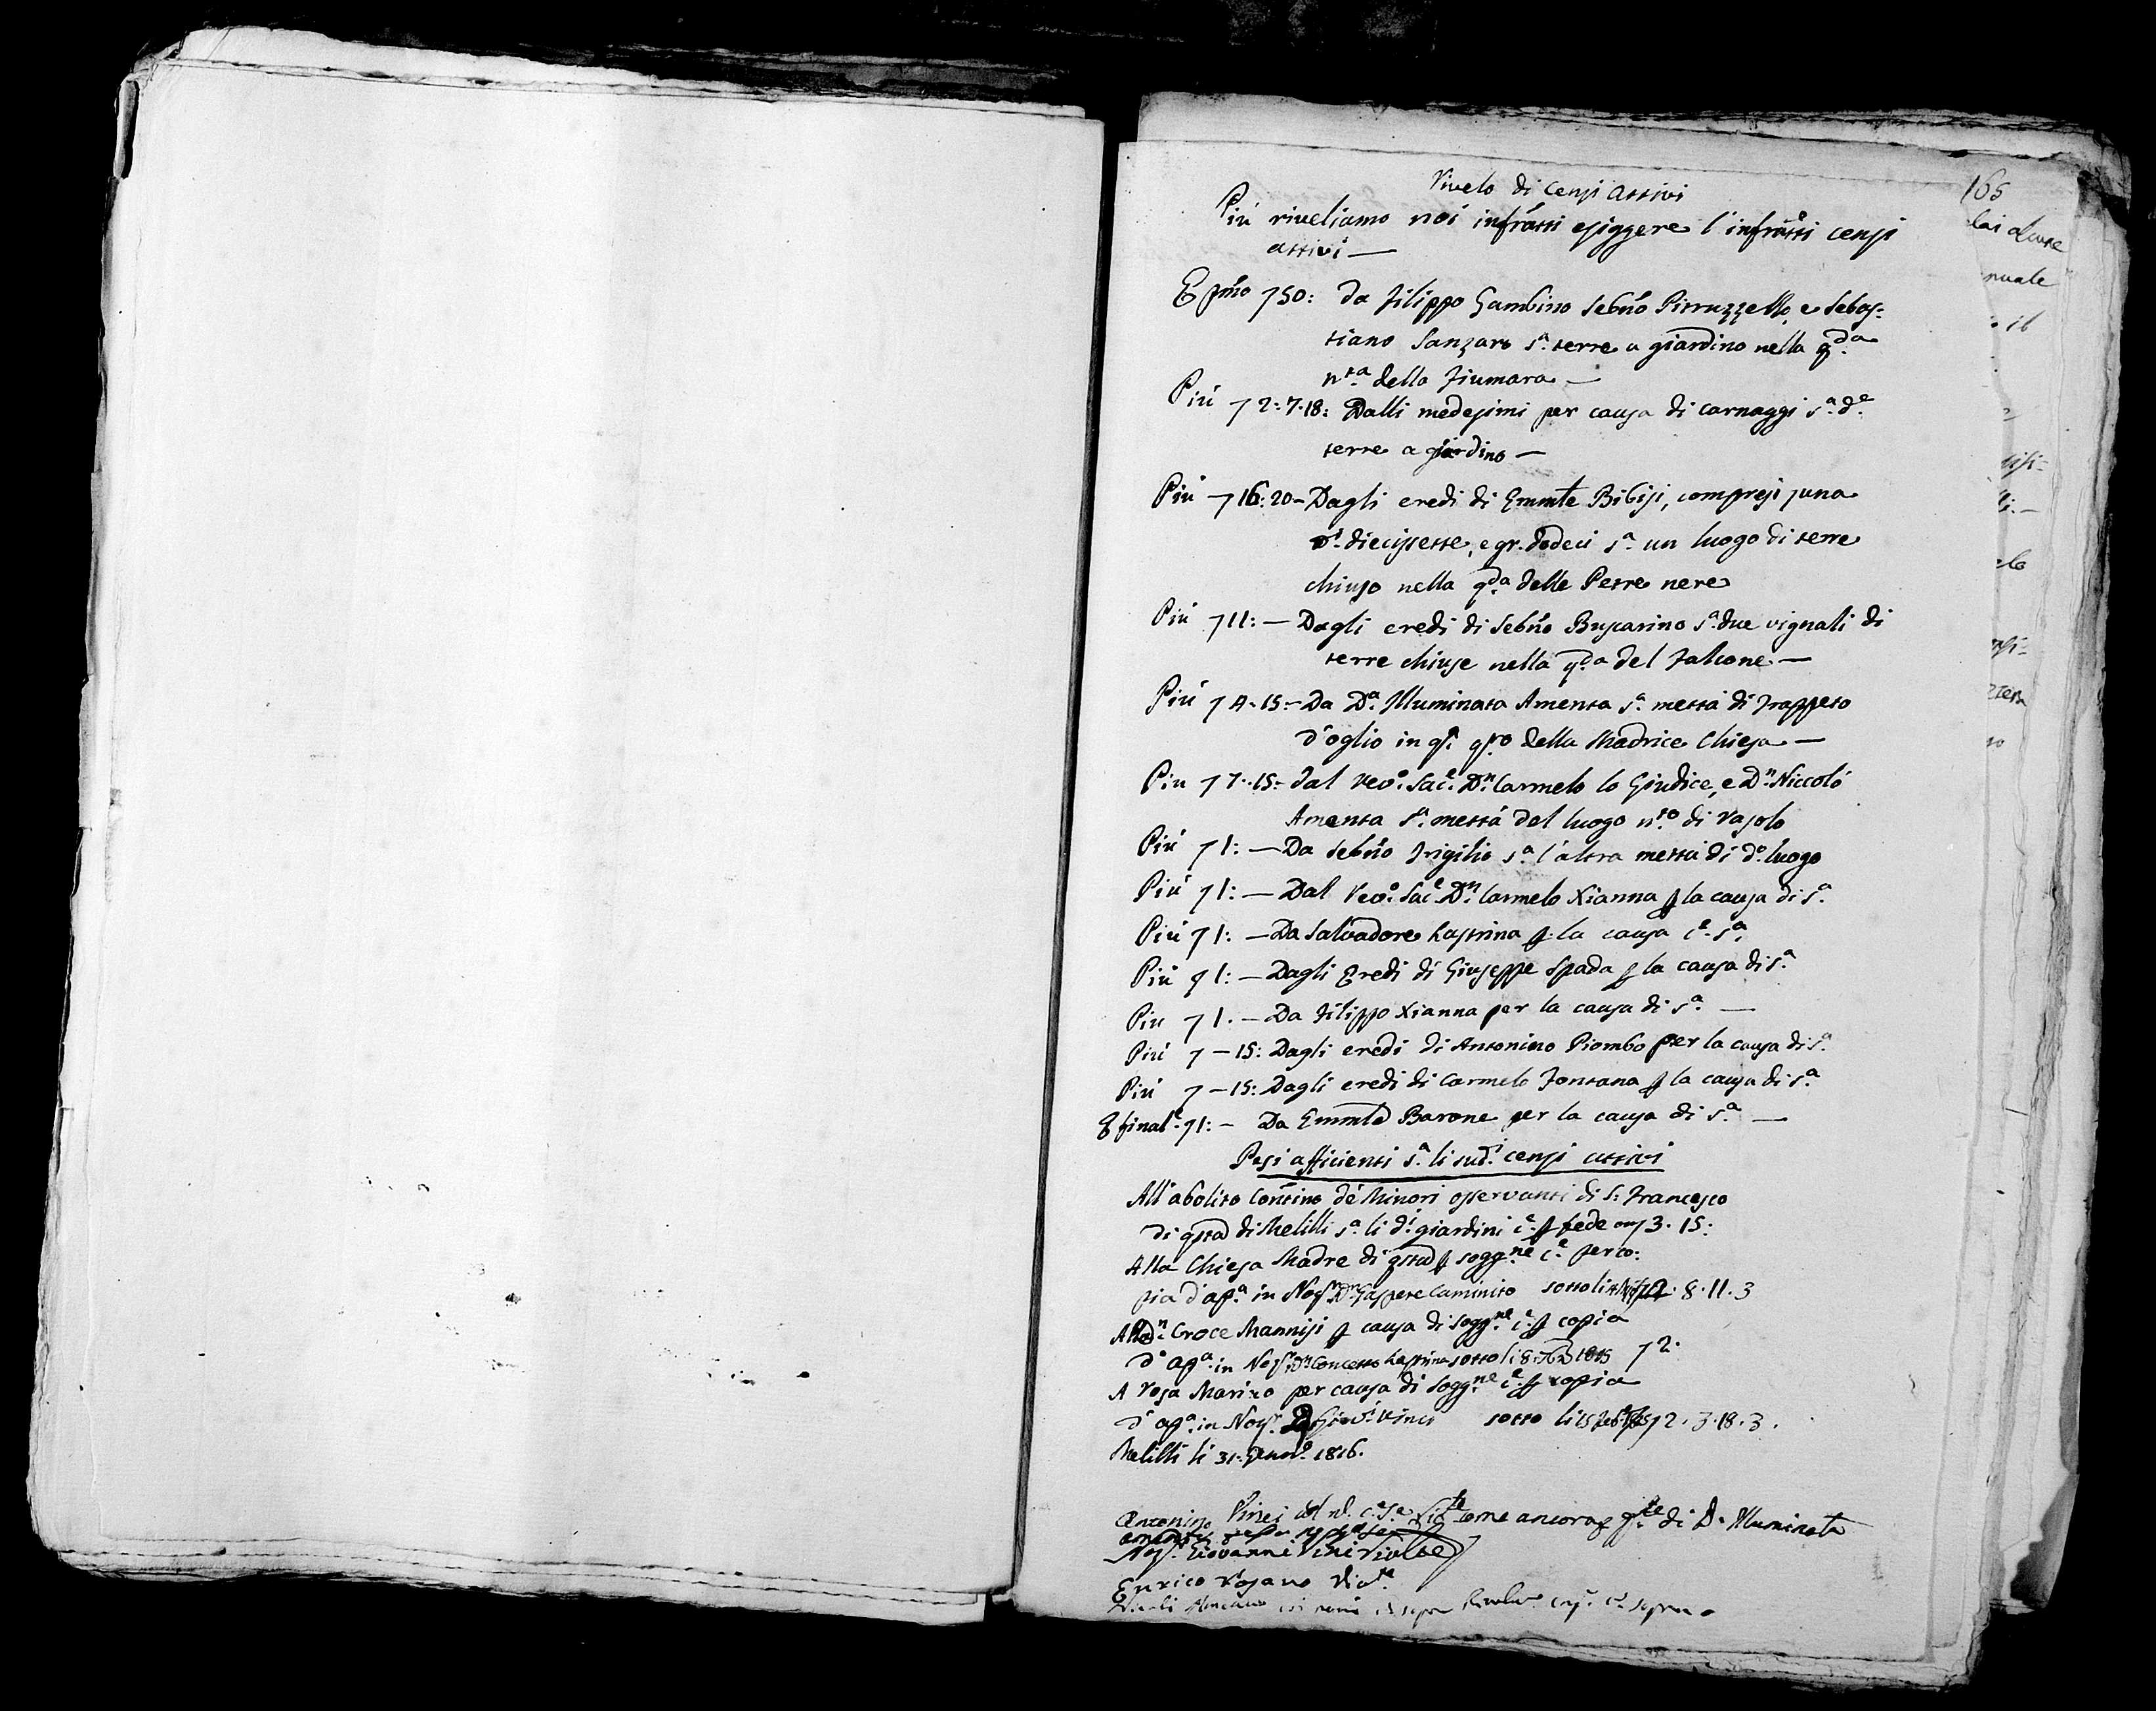 165
Rivelo di Censi Attivi
Più riveliamo noi infrātti esiggere l'infrātti censi
attivi —
E p̄mo 7 50: da Filippo Gambino Sebn̄o Pirruzzello, e Sebas=
tiano Sanzaro sa. terre a giardino nella qda.
nra. della Fiumara —
Più 7 2:7.18: Dalli medesimi per causa di carnaggi sa. de.
terre a giardino —
Più 7 16:20 – Dagli eredi di Emmle Bibisi, compresi
diecisette, e gr. dodeci sa. un luogo di terre
chiuso nella qda. delle Petre nere
Più 7 11: — Dagli eredi di Sebn̄o Buscarino sa. due vignali di
terre chiuse nella qda. del Falcone —
Più 7 4.15: – Da Da. Illuminata Amenta sa. mettà di Trappeto
d'oglio in qro della Madrice Chiesa —
Piu 7 7..15: – Dal Revo. Sace. Dn. Carmelo lo Giudice, e Dn. Niccolò
Amenta sa. mettà del luogo nro. di Rasolo
Più 7 1: — Da Sebn̄o Frigilio sa. l'altra mettà di do. luogo
Più 7 1: — Dal Revo. Sace. Dn. Carmelo Xianna p la causa di sa.
Più 7 1: — Da Salvadore Lastrina p. la causa ce. sa.
Più 7 1: — Dagli Eredi di Giuseppe Spada p la causa di sa.
Piu 7 1: — Da Filippo Xianna per la causa di sa. —
Più 7 — 15: Dagli eredi di Antonino Piombo per la causa di sa.
Più 7 — 15: Dagli eredi di Carmelo Fontana p la causa di sa.
E finale. 7 1: – Da Emmle Barone per la causa di sa. —
Pesi afficienti sa. li sudi. censi attivi
All'abolito Con̄tino de' Minori osservanti di S: Francesco
di qsta di Melilli sa. li di. giardini ce. p fede 3. 15:
Alla Chiesa Madre di qsta p soggne. ce. per co:
pia d'apa. in Nor. Dn. Gaspere Caminito sotto li 8. 11. 3
A Dn. Croce Mannisi p causa di soggne. ce. p copia
d'apa. in Nor. Dn. Concetto Lastrina sotto li 8. 1815 7 2.
A Rosa Marino per causa di soggne. ce. p copia
d'apa. in Nor. Giovi. Vinci sotto li 15 7 2. 3. 18. 3.
Melilli li 31: Genro. 1816.
Antonino Vinci come ancora di D. Illuminata
Nor. Giovanni Vinci Rivlte
Enrico Rosano Rivte.